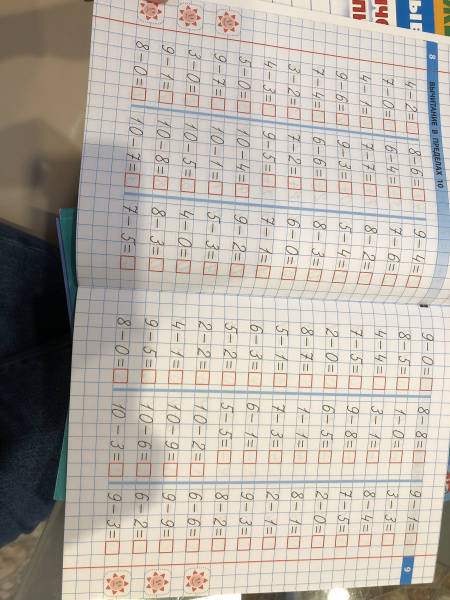 8 ВЫЧИТАНИЕ В ПРЕДЕЛАХ 10
4-2= 8-6= 9-4=
7-0= 6-4= 7-6=
4-1= 7-7= 8-2=
9-6= 9-3= 5-4=
7-4= 6-6= 8-3=
3-2= 7-2= 6-0=
4-3= 9-5= 7-1=
5-0= 10-4= 9-2=
9-7= 10-1= 5-3=
3-0= 10-5= 4-0=
9-1= 10-8= 8-3=
8-0= 10-7= 7-5=
9
9-0= 8-8= 9-1=
8-5= 1-0= 3-3=
4-4= 3-1= 8-4=
7-5= 9-8= 7-5=
2-0= 6-5= 2-0=
8-7= 1-1= 8-1=
5-1= 7-3= 2-1=
6-3= 6-1= 9-3=
5-2= 5-5= 8-2=
2-2= 10-2= 6-6=
4-1= 10-9= 9-9=
9-5= 10-6= 6-2=
8-0= 10-3= 9-3=